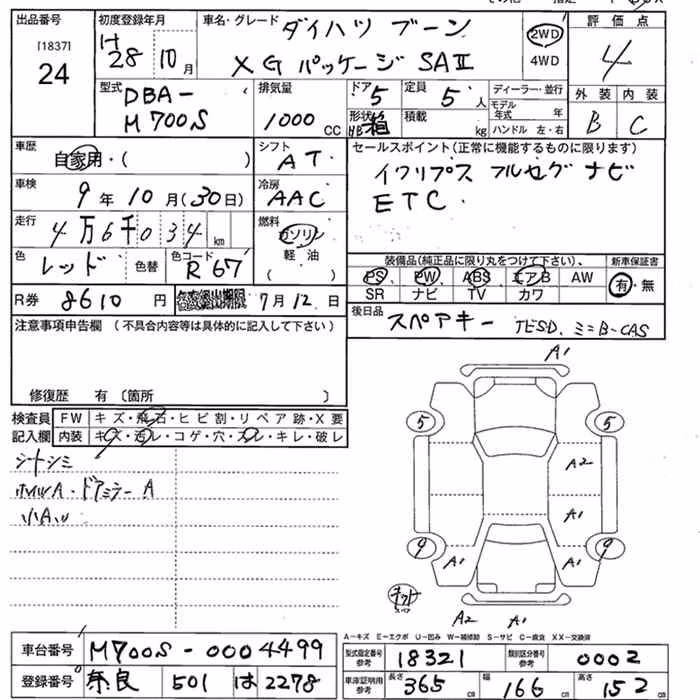 出品番号 初度登録年月 車名・グレード ダイハツ ブーン 2WD 評価点
[1837] H28 10月 X G パッケージ SAⅡ 4WD 4
24
型式 DBA- M700S 排気量 1000 CC ドア 5 定員 5 人 ディーラー・並行 外装 内装
形状 箱 HB 積載 kg モデル年式 年 B C
ハンドル 左・右
車歴 自家用・( ) シフト AT セールスポイント(正常に機能するものに限ります)
車検 9年10月(30日) 冷房 AAC イクリプス フルセグナビ
ETC
走行 4万6千034 km 燃料 ガソリン
色 レッド 色替 色コード R67 軽油 ( )
装備品(純正品に限り丸をつけて下さい)、 新車保証書
PS PW ABS エアB AW 有・無
SR ナビ TV カワ
R券 8610 円 7月12日
後日品 スペアキー TESD、ミニB-CAS
注意事項申告欄 (不具合内容等は具体的に記入して下さい)
修復歴 有 〔箇所 〕
検査員 FW キズ・飛石・ヒビ割・リペア跡・X要
記入欄 内装 キズ・汚レ・コゲ・穴・スレ・キレ・破レ
シートシミ
ホイルA・ドアミラーA
小A
A1
5 5
A2
A1
9 9
A1 A1
A2 A1
A-キズ E-エクボ U-凹み W-補修跡 S-サビ C-腐食 XX-交換済
車台番号 M700S-0004499 型式指定番号 参考 18321 類別区分番号 参考 0002
登録番号 奈良 501 は 2278 車庫証明用 参考 長さ 365 cm 幅 166 cm 高さ 152 cm